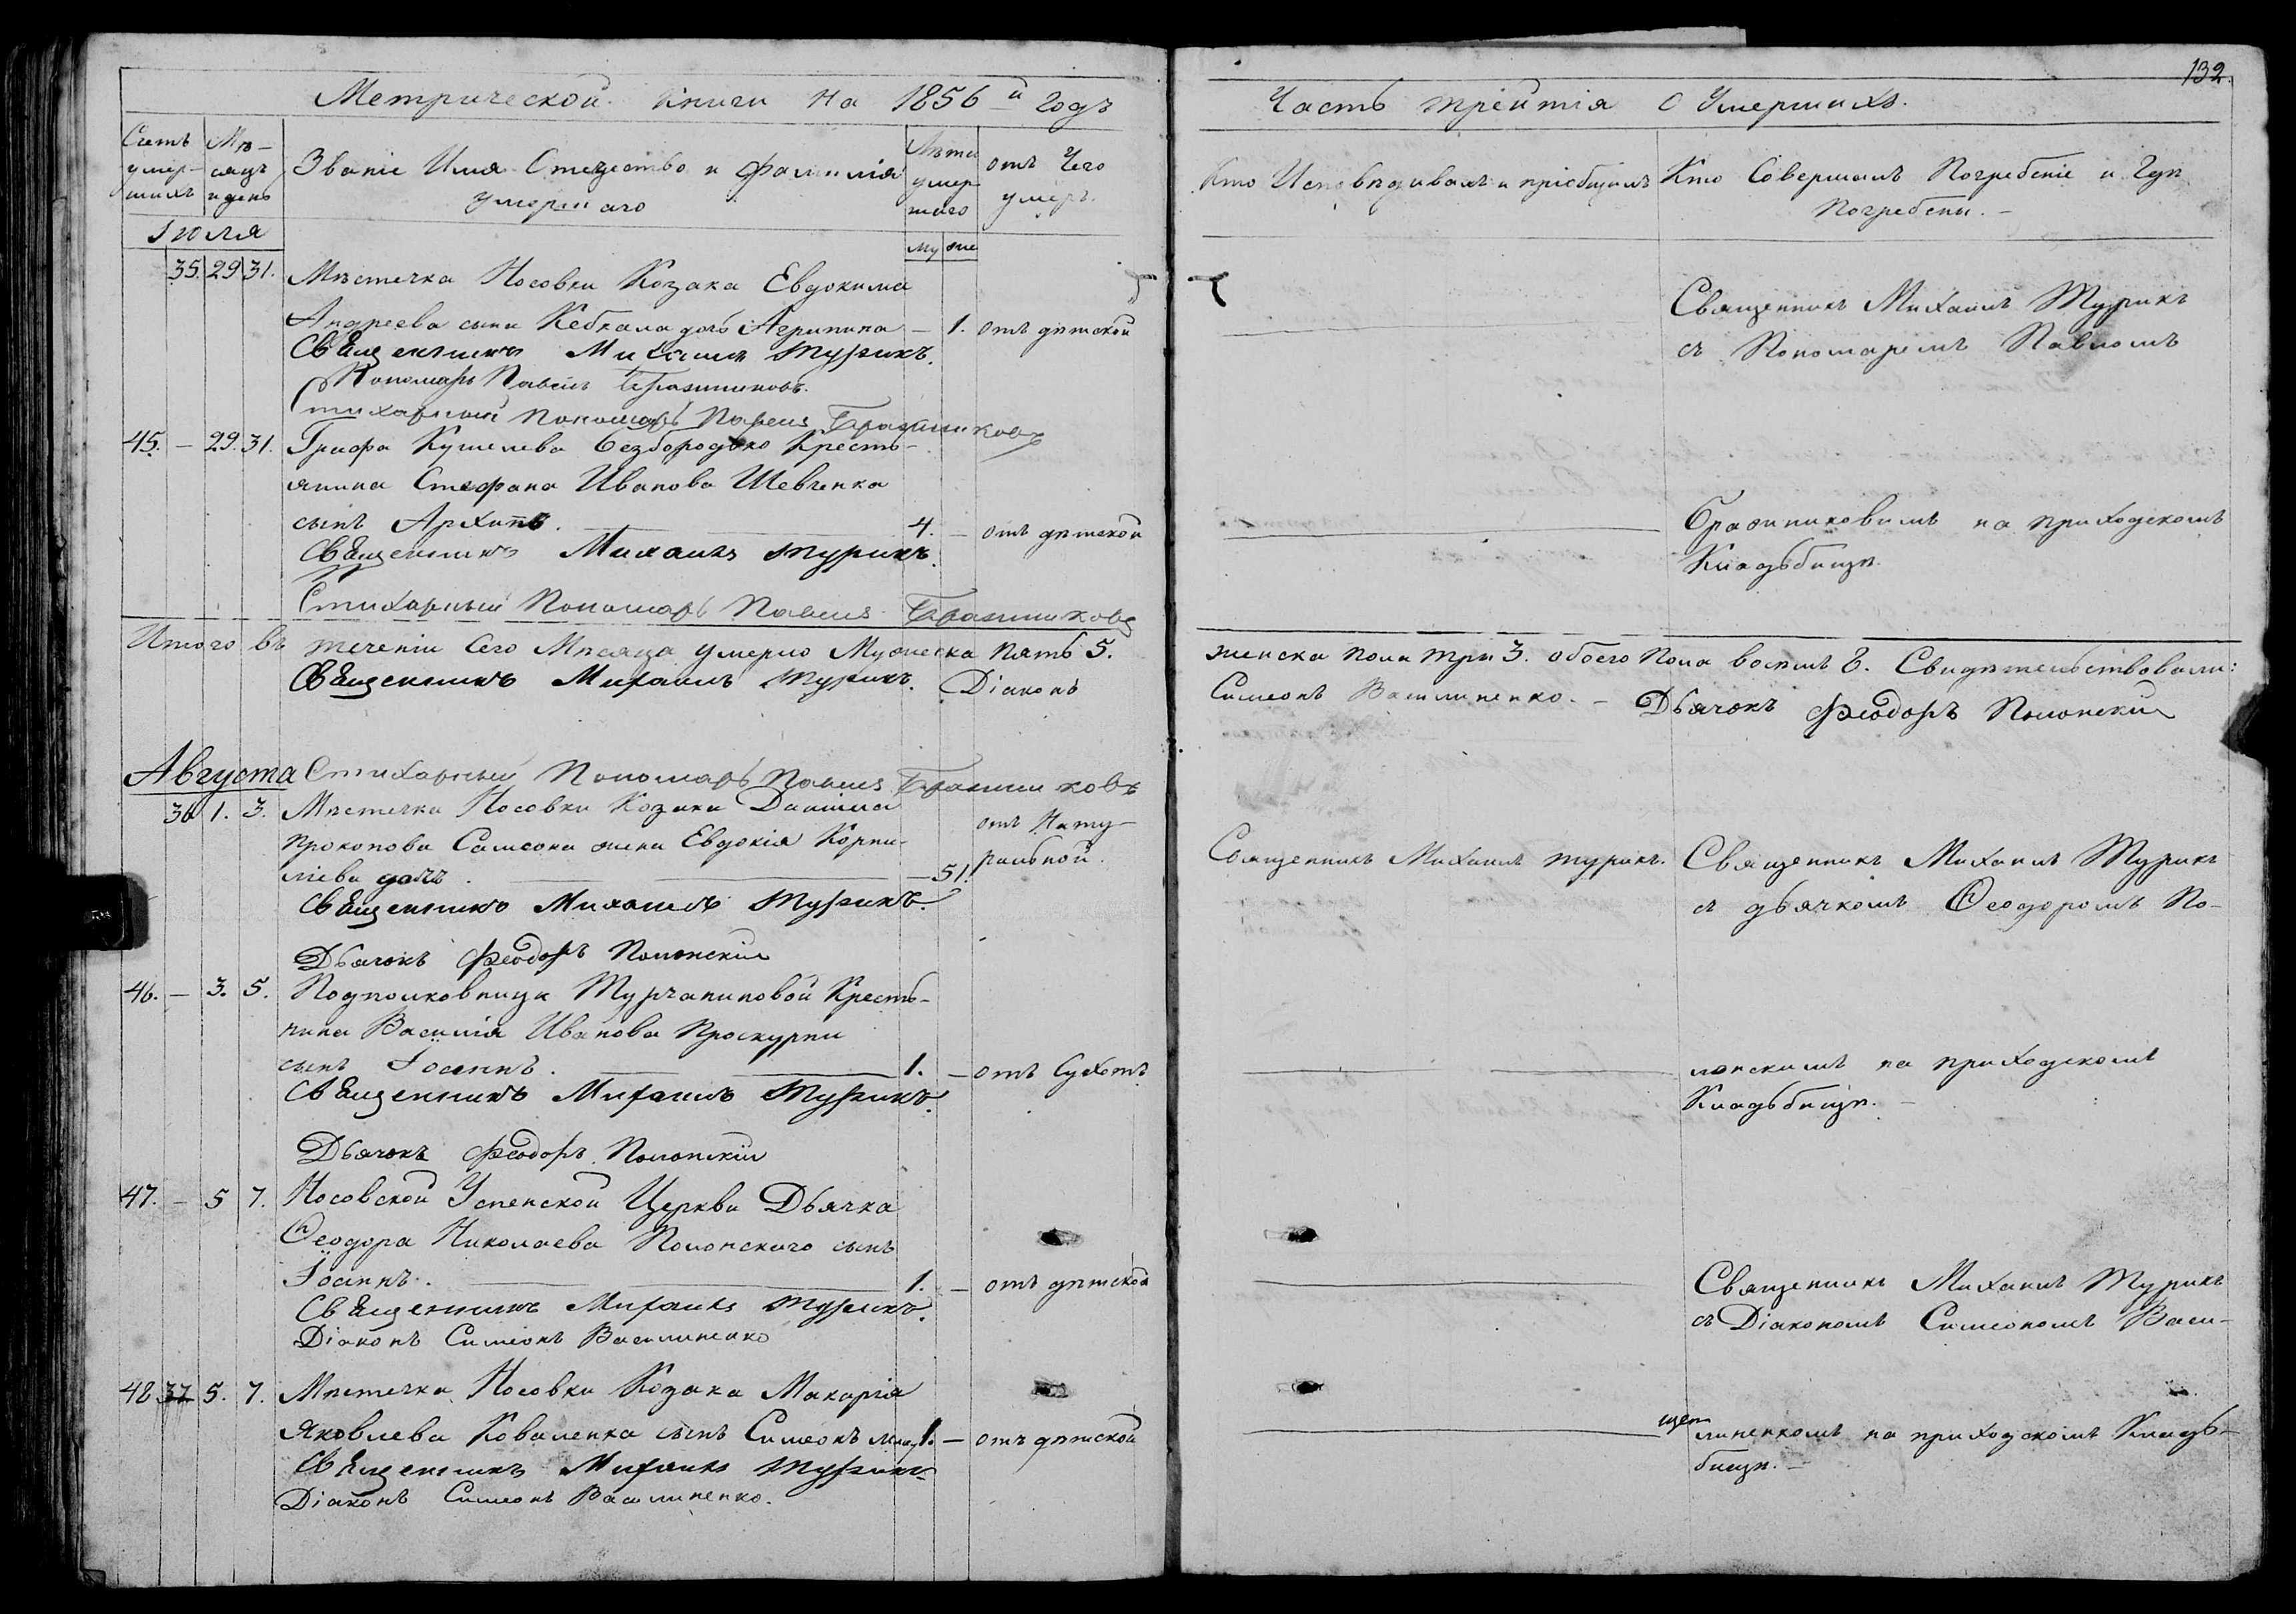 132.
Метрической книги на 1856й годъ
Счетъ умер-шихъ
Мѣ-сяцъ и день
Званіе Имя Отечество и Фамилія умершаго
Лѣта умер-шаго
отъ Чего умеръ.
му же
Іюля
35. 29 31. Мѣстечка Носовки Козака Евдокима
Андреева сына Кебкала дочь Агрипина — 1. отъ дѣтской
Священникъ Михаилъ Турикъ.
Пономарь Павелъ Бражниковъ.
Стихарный Пономарь Павелъ Бражниковъ
45. — 29. 31. Графа Кушелева Безбородько Кресть-
янина Стефана Иванова Шевченка
сынъ Архипъ. 4. — отъ дѣтской
Священникъ Михаилъ Турикъ.
Стихарный Пономарь Павелъ Бражниковъ
Итого въ теченіи Сего Мѣсяца умерло Мужеска пять 5.
Священникъ Михаилъ Турикъ. Діаконъ
Августа Стихарный Пономарь Павелъ Бражниковъ
36 1. 3. Мѣстечка Носовки Козака Даніила
Прокопова Самсона жена Евдокія Корни-
ліева дочь. — 51. отъ Нату-
ральной.
Священникъ Михаилъ Турикъ.
Дьячокъ Феодоръ Полонскій
46. — 3. 5. Подполковницы Турчаниновой Кресть-
нина Василія Иванова Проскурни
сынъ Іоаннъ. 1. — отъ Сухотъ
Священникъ Михаилъ Турикъ.
Дьячокъ Феодоръ Полонскій
47. — 5 7. Носовской Успенской Церкви Дьячка
Ѳеодора Николаева Полонскаго сынъ
Іоаннъ. 1. — отъ дѣтской
Священникъ Михаилъ Турикъ.
Діаконъ Симеонъ Василиненко
48 37 5. 7. Мѣстечка Носовки Козака Макарія
Яковлева Коваленка сынъ Симеонъ 1. — отъ дѣтской
Священникъ Михаилъ Турикъ
Діаконъ Симеонъ Василиненко.
Часть третія о Умершихъ.
Кто Исповѣдивалъ и пріобщалъ
Кто Совершалъ Погребеніе и Гдѣ
Погребены. —
Священникъ Михаилъ Турикъ
съ Пономаремъ Павломъ
Бражниковимъ на приходскомъ
Кладьбищѣ.
женска пола три 3. обоего пола восемь 8. Свидѣтельствовали:
Симеонъ Василиненко. — Дьячокъ Феодоръ Полонскій
Священникъ Михаилъ Турикъ. Священникъ Михаилъ Турикъ
съ дьячкомъ Ѳеодоромъ По-
лонскимъ на приходскомъ
Кладьбищѣ. —
Священникъ Михаилъ Турикъ
съ Діакономъ Симеономъ Васи-
линенкомъ на приходскомъ Кладь-
бищѣ. —